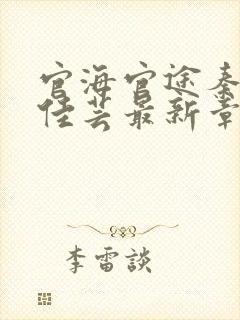 官海官途秦
佳芸最新章
李雷談